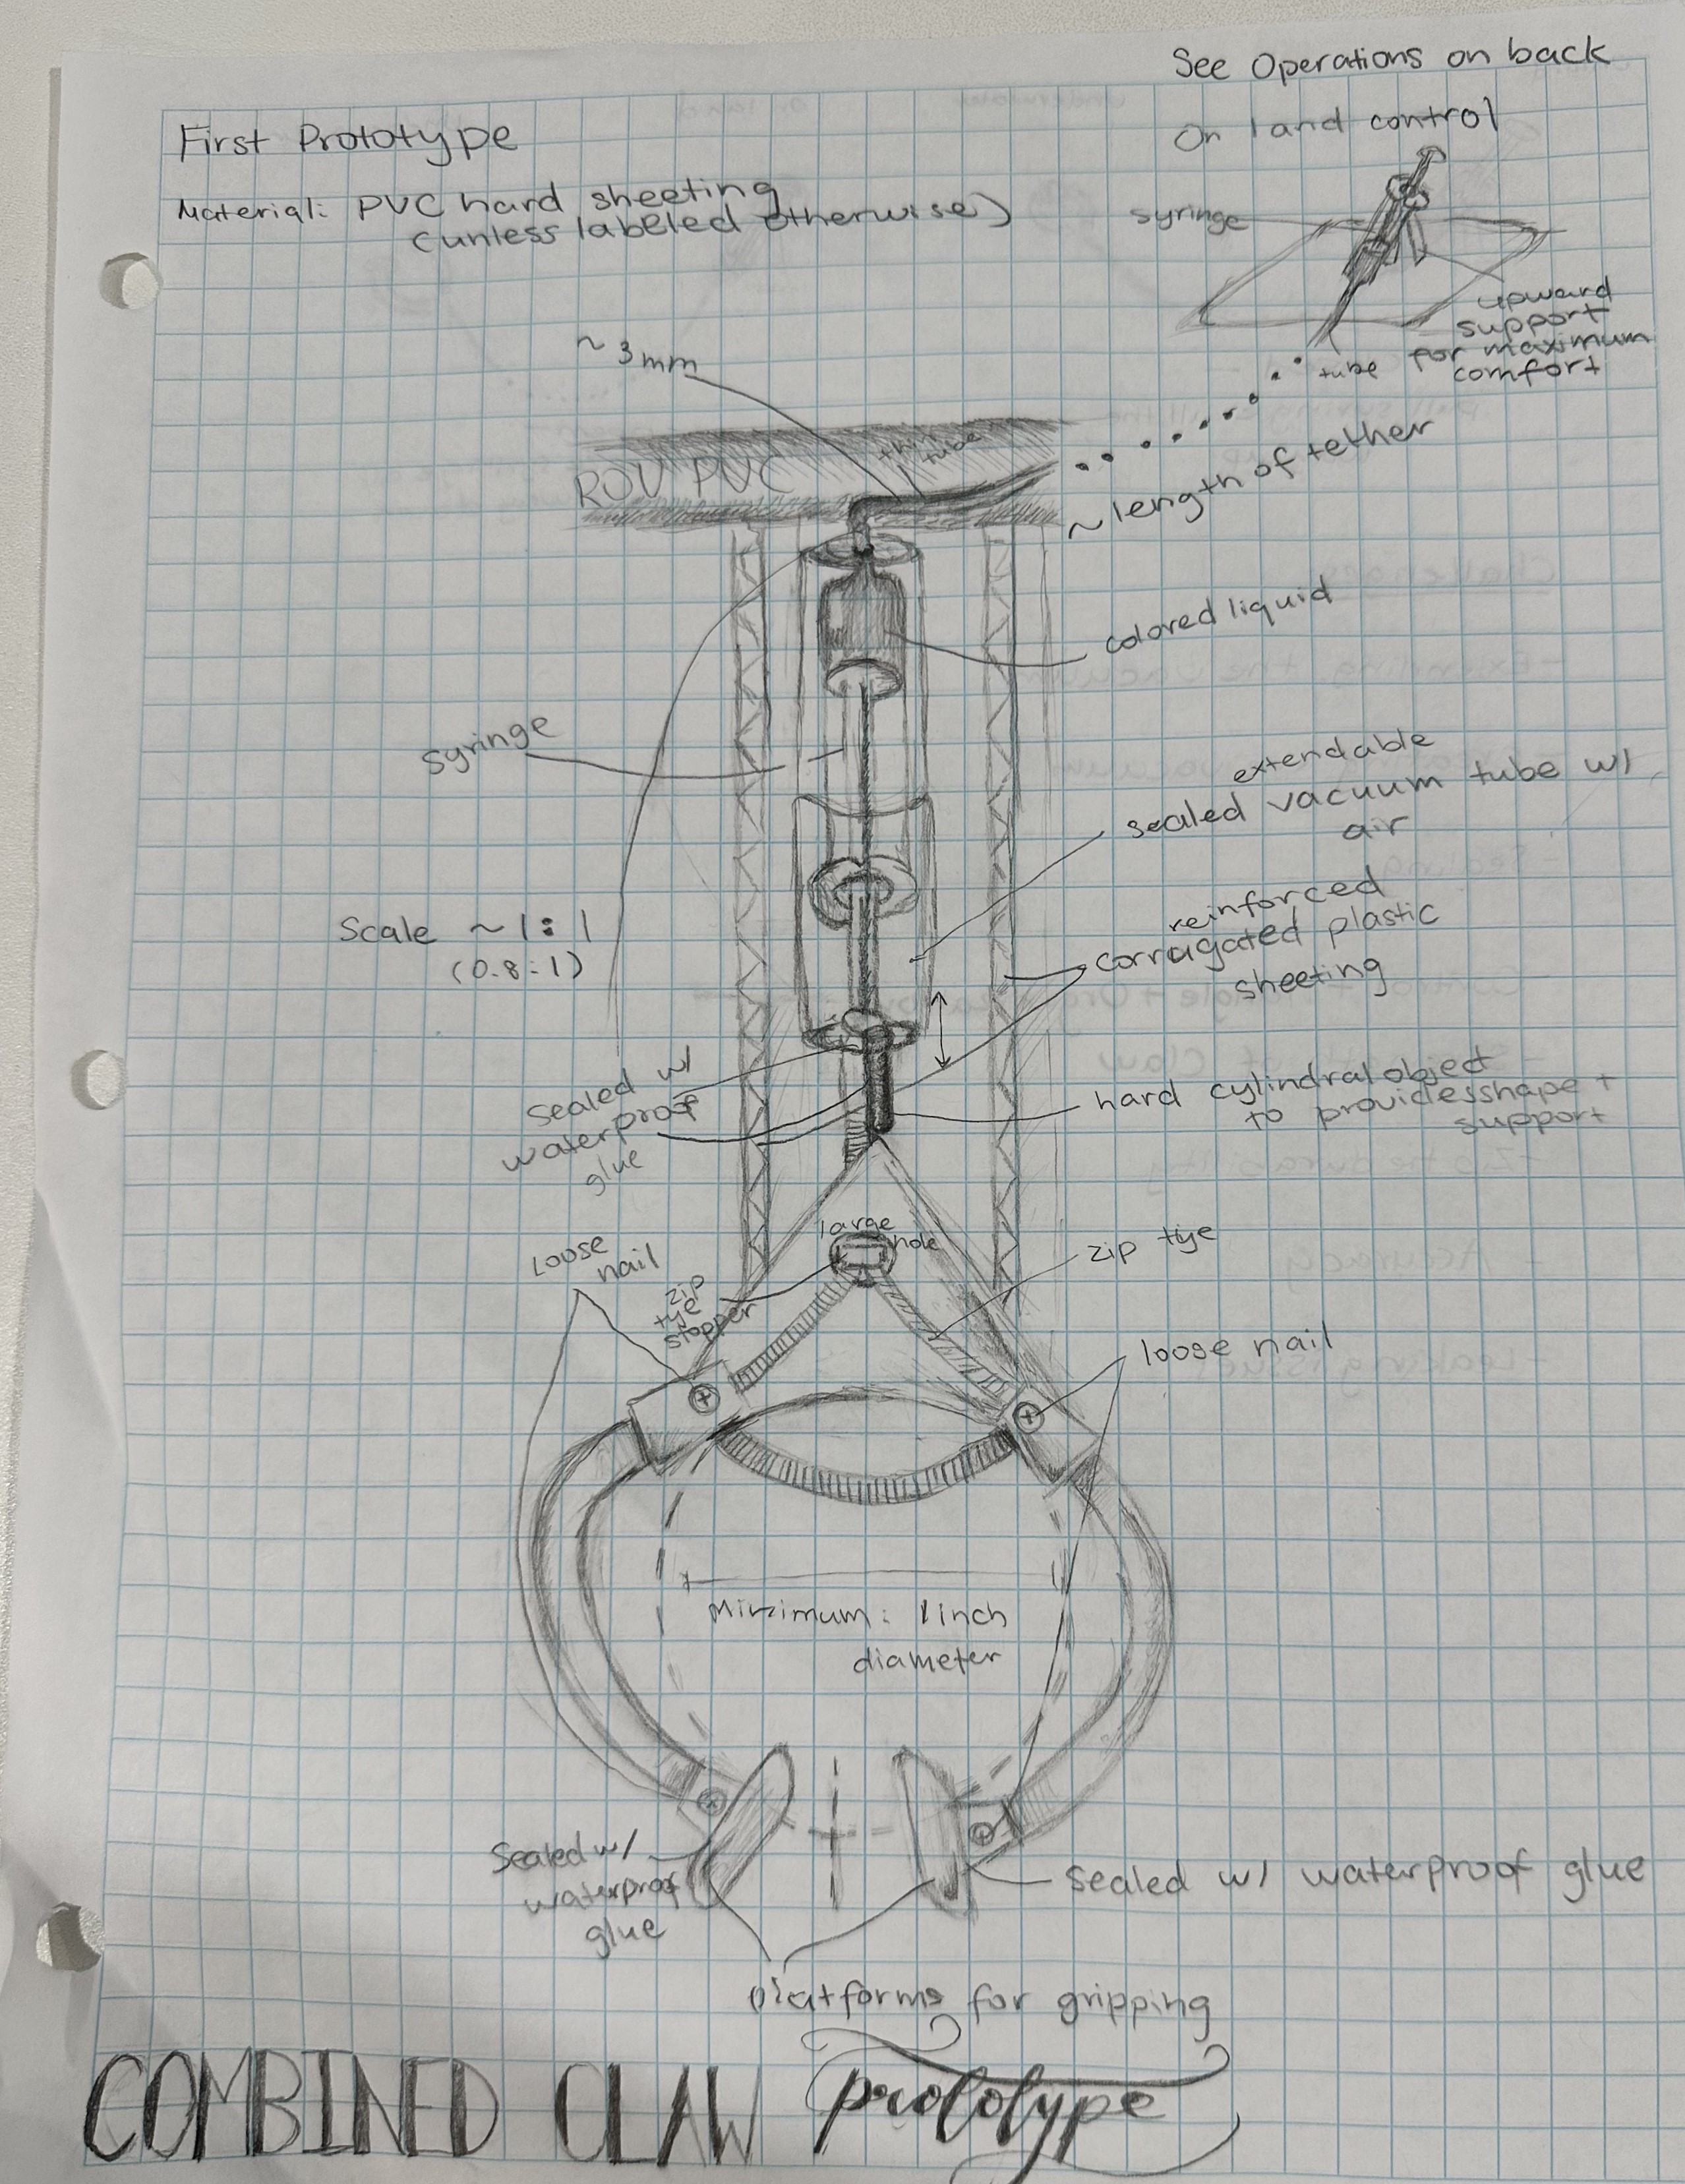 See Operations on back
First Prototype
On land control
Material: PVC hard sheeting
(unless labeled otherwise)
syringe
upward
support
for maximum
comfort
tube
~ 3mm
thin
tube
ROV PVC
~ length of tether
colored liquid
syringe
extendable
sealed vacuum tube w/
air
Scale ~ 1:1
(0.8:1)
reinforced
corrugated plastic
sheeting
sealed w/
waterproof
glue
hard cylindral object
to provides shape +
support
large
hole
loose
nail
zip
tye
stopper
zip tye
loose nail
Minimum: 1 inch
diameter
Sealed w/
waterproof
glue
Sealed w/ waterproof glue
platforms for gripping
COMBINED CLAW prototype